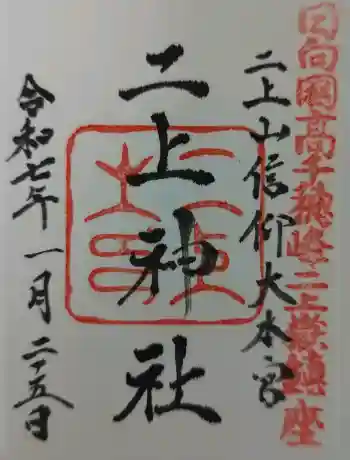 日向國高千穂峰二上嶽鎮座
二上山信仰大本宮
二上神社
令和七年一月二十五日